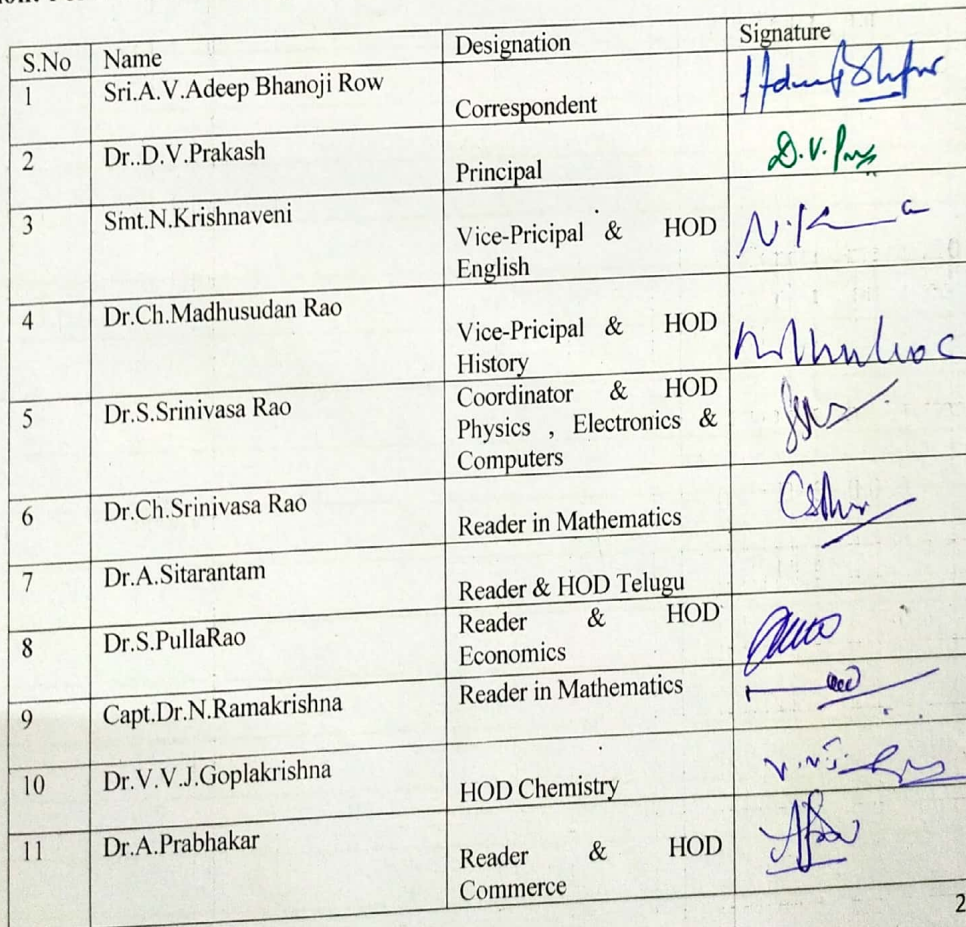 S.No Name Designation Signature
1 Sri.A.V.Adeep Bhanoji Row Correspondent
2 Dr..D.V.Prakash Principal D.V.
3 Smt.N.Krishnaveni Vice-Pricipal & HOD
English
4 Dr.Ch.Madhusudan Rao Vice-Pricipal & HOD
History
5 Dr.S.Srinivasa Rao Coordinator & HOD
Physics , Electronics &
Computers
6 Dr.Ch.Srinivasa Rao Reader in Mathematics
7 Dr.A.Sitarantam Reader & HOD Telugu
8 Dr.S.PullaRao Reader & HOD
Economics
9 Capt.Dr.N.Ramakrishna Reader in Mathematics
10 Dr.V.V.J.Goplakrishna HOD Chemistry
11 Dr.A.Prabhakar Reader & HOD
Commerce
2